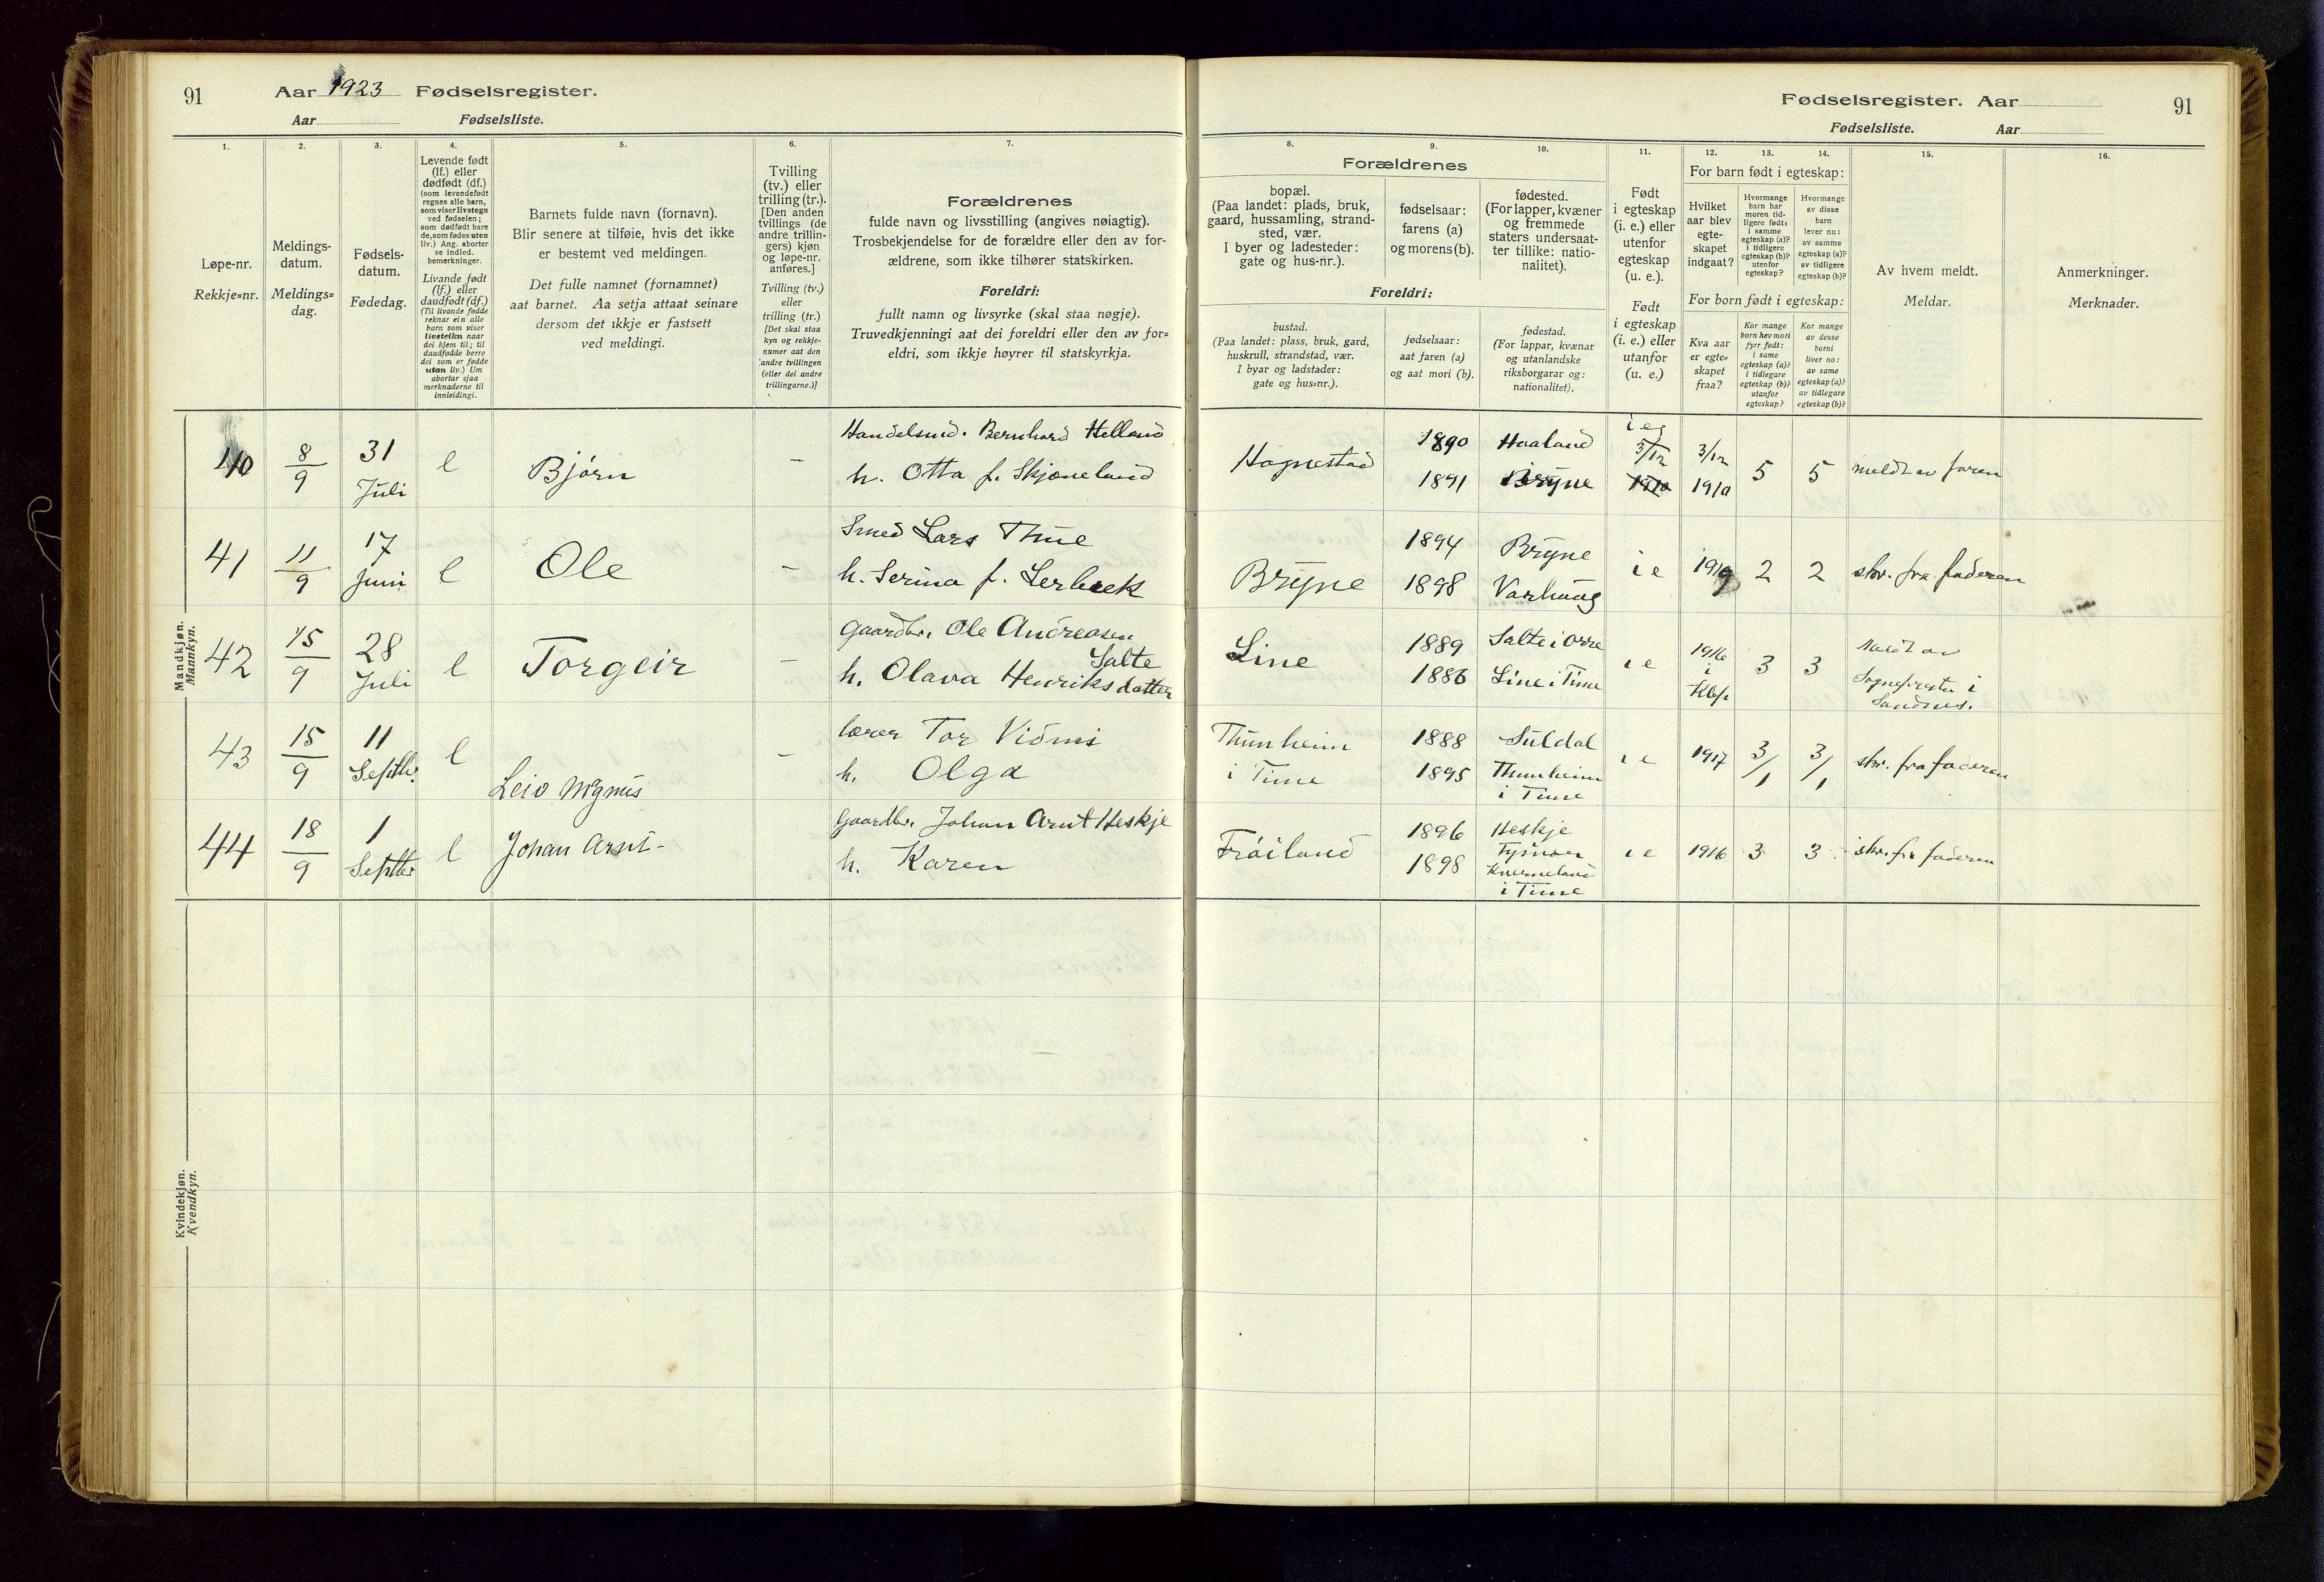 91
Aar 1923 Fødselsregister.
Aar Fødselsliste.
1.
Løpe-nr.
Rekkje=nr.
2.
Meldings-
datum.
Meldings=
dag.
3.
Fødsels-
datum.
Fødedag.
4.
Levende født
(lf.) eller
dødfødt (df.)
(som levendefødt
regnes alle barn,
som viser livstegn
ved fødselen;
som dødfødt bare
de, som fødes uten
liv.) Ang. aborter
se indled.
bemerkninger.
Livande født
(lf.) eller
daudfødt (df.)
(Til livande fødde
reknar ein alle
barn som viser
livsteikn naar
dei kjem til; til
daudfødde berre
dei som er fødde
utan liv.) Um
abortar sjaa
merknaderne til
innleidingi.
5.
Barnets fulde navn (fornavn).
Blir senere at tilføie, hvis det ikke
er bestemt ved meldingen.
Det fulle namnet (fornamnet)
aat barnet. Aa setja attaat seinare
dersom det ikkje er fastsett
ved meldingi.
6.
Tvilling
(tv.) eller
trilling (tr.).
[Den anden
tvillings (de
andre trillin-
gers) kjøn
og løpe-nr.
anføres.]
Tvilling (tv.)
eller
trilling (tr.)
[Det skal staa
kyn og rekkje-
numer aat den
andre tvillingen
(eller dei andre
trillingarne.)]
7.
Forældrenes
fulde navn og livsstilling (angives nøiagtig).
Trosbekjendelse for de forældre eller den av for-
ældrene, som ikke tilhører statskirken.
Foreldri:
fullt namn og livsyrke (skal staa nøgje).
Truvedkjenningi aat dei foreldri eller den av for=
eldri, som ikkje høyrer til statskyrkja.
Mandkjøn.
Mannkyn.
40
8
9
31
Juli
l
Bjørn
–
Handelsmd. Bernhard Helland
h. Otta f. Skjæveland
41
11
9
17
Juni
l
Ole
–
Smed Lars Thue
h. Serina f. Lerbrek
42
15
9
28
Juli
l
Torgeir
–
Gaardbr. Ole Andreasen
Salte
h. Olava Henriksdatter
43
15
9
11
Septbr.
l
Leiv Magnus
–
lærer Tor Vidnes
h. Olga
44
18
9
1
Septbr
l
Johan Arnt
Gaardbr. Johan Arnt Heskje
h. Karen
Kvindekjøn.
Kvendkyn.
Fødselsregister. Aar
91
Fødselsliste. Aar
8.
Forældrenes
bopæl.
(Paa landet: plads, bruk,
gaard, hussamling, strand-
sted, vær.
I byer og ladesteder:
gate og hus-nr.).
Foreldri:
bustad.
(Paa landet: plass, bruk, gard,
huskrull, strandstad, vær.
I byar og ladstader:
gate og hus=nr.).
9.
fødselsaar:
farens (a)
og morens (b).
fødselsaar:
aat faren (a)
og aat mori (b).
10.
fødested.
(For lapper, kvæner
og fremmede
staters undersaat-
ter tillike: natio-
nalitet).
fødestad.
(For lappar, kvænar
og utanlandske
riksborgarar og:
nationalitet).
11.
Født
i egteskap
(i. e.) eller
utenfor
egteskap
(u. e.).
Født
i egteskap
(i. e.) eller
utanfor
(u. e.)
12.
For barn født i egteskap:
Hvilket
aar blev
egte-
skapet
indgaat?
For born født i egteskap:
Kva aar
er egte=
skapet
fraa?
13.
Hvormange
barn har
moren tid-
ligere født:
i samme
egteskap (a)?
i tidligere
egteskap (b)?
utenfor
egteskap?
Kor mange
born hev mori
fyrr født:
i same
egteskap (a)?
i tidlegare
egteskap (b)?
utanfor
egteskap?
14.
Hvormange
av disse
barn
lever nu:
av samme
egteskap (a)?
av tidligere
egteskap (b)?
Kor mange
av desse
borni
liver no:
av same
egteskap (a)?
av tidlegare
egteskap (b)?
15.
Av hvem meldt.
Meldar.
16.
Anmerkninger.
Merknader.
Hognestad
1890
1891
Haaland
Bryne
i eg
3/12
1910
3/12
1910
5
5
meldt av faren
Bryne
1894
1898
Bryne
Varhaug
i e
1919
2
2
skr. fra faderen
Line
1889
1886
Salte i Orre
Line i Time
i e
1916
i
Klep
3
3
Meldt av
Sognepresten i
Sandnes.
Thunheim
i Time
1888
1895
Suldal
Thunheim
i Time
i e
1917
3/1
3/1
skr. fra faderen
Frøiland
1896
1898
Heskje
Tysnes
Kverneland
i Time
i e
1916
3
3
skr. fra faderen